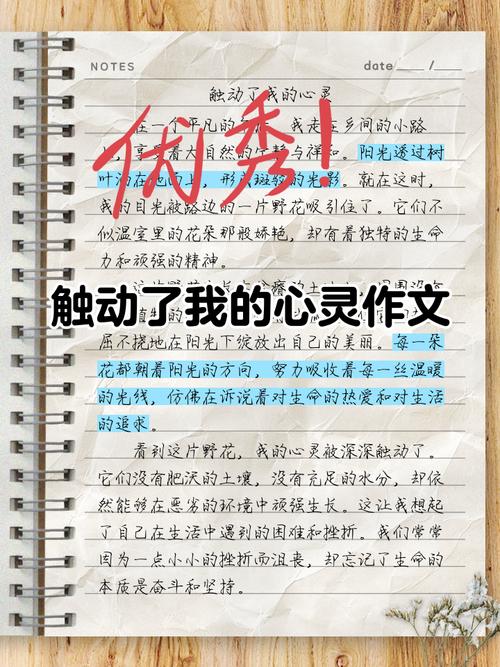 NOTES
date ___ / ___
触动了我的心灵
优秀!
在一个平凡的 我走在乡间的小路
上,享受着大自然的宁静与祥和。阳光透过树
叶洒在地面上,形成斑驳的光影。就在这时,
我的目光被路边的一片野花吸引住了。它们不
似温室里的花朵那般娇艳,却有着独特的生命
力和顽强的精神。
触动了我的心灵作文
屈不挠地在阳光下绽放出自己的美丽。每一朵
花都朝着阳光的方向,努力吸收着每一丝温暖
的光线,仿佛在诉说着对生命的热爱和对生活
的追求。
看到这片野花,我的心灵被深深触动了。
它们没有肥沃的土壤,没有充足的水分,却依
然能够在恶劣的环境中顽强生长。这让我想起
了自己在生活中遇到的困难和挫折。我们常常
因为一点小小的挫折而沮丧,却忘记了生命的
本质是奋斗和坚持。